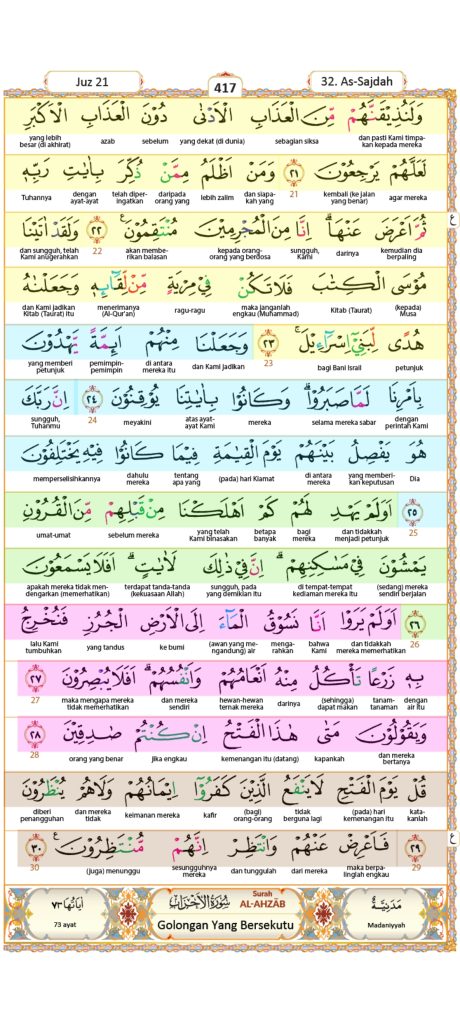 Juz 21 417 32. As-Sajdah
وَلَنُذِيقَنَّهُمْ مِّنَ الْعَذَابِ الْاَدْنٰى دُوْنَ الْعَذَابِ الْاَكْبَرِ
dan pasti Kami timpakan kepada mereka sebagian siksa yang dekat (di dunia) sebelum azab yang lebih besar (di akhirat)
لَعَلَّهُمْ يَرْجِعُوْنَ ٢١ وَمَنْ اَظْلَمُ مِمَّنْ ذُكِّرَ بِاٰيٰتِ رَبِّهٖ
agar mereka kembali (ke jalan yang benar) 21 dan siapakah yang lebih zalim daripada orang yang telah diperingatkan dengan ayat-ayat Tuhannya
ثُمَّ اَعْرَضَ عَنْهَا ۗ اِنَّا مِنَ الْمُجْرِمِيْنَ مُنْتَقِمُوْنَ ٢٢ وَلَقَدْ اٰتَيْنَا ع
kemudian dia berpaling darinya sungguh, Kami kepada orang-orang yang berdosa akan memberikan balasan 22 dan sungguh, telah Kami anugerahkan
مُوْسَى الْكِتٰبَ فَلَا تَكُنْ فِيْ مِرْيَةٍ مِّنْ لِّقَاۤىِٕهٖ وَجَعَلْنٰهُ
(kepada) Musa Kitab (Taurat) maka janganlah engkau (Muhammad) ragu-ragu menerimanya (Al-Qur'an) dan Kami jadikan Kitab (Taurat) itu
هُدًى لِّبَنِيْٓ اِسْرَاۤءِيْلَ ۚ ٢٣ وَجَعَلْنَا مِنْهُمْ اَىِٕمَّةً يَّهْدُوْنَ
petunjuk bagi Bani Israil 23 dan Kami jadikan di antara mereka itu pemimpin-pemimpin yang memberi petunjuk
بِاَمْرِنَا لَمَّا صَبَرُوْا ۗ وَكَانُوْا بِاٰيٰتِنَا يُوْقِنُوْنَ ٢٤ اِنَّ رَبَّكَ
dengan perintah Kami selama mereka sabar mereka atas ayat-ayat Kami meyakini 24 sungguh, Tuhanmu
هُوَ يَفْصِلُ بَيْنَهُمْ يَوْمَ الْقِيٰمَةِ فِيْمَا كَانُوْا فِيْهِ يَخْتَلِفُوْنَ
Dia yang memberikan keputusan di antara mereka (pada) hari Kiamat tentang apa yang dahulu mereka memperselisihkannya
٢٥ اَوَلَمْ يَهْدِ لَهُمْ كَمْ اَهْلَكْنَا مِنْ قَبْلِهِمْ مِّنَ الْقُرُوْنِ
25 dan tidakkah menjadi petunjuk bagi mereka betapa banyak yang telah Kami binasakan sebelum mereka umat-umat
يَمْشُوْنَ فِيْ مَسٰكِنِهِمْ ۗ اِنَّ فِيْ ذٰلِكَ لَاٰيٰتٍ ۗ اَفَلَا يَسْمَعُوْنَ
(sedang) mereka sendiri berjalan di tempat-tempat kediaman mereka itu sungguh, pada yang demikian itu terdapat tanda-tanda (kekuasaan Allah) apakah mereka tidak mendengarkan (memerhatikan)
٢٦ اَوَلَمْ يَرَوْا اَنَّا نَسُوْقُ الْمَاۤءَ اِلَى الْاَرْضِ الْجُرُزِ فَنُخْرِجُ
26 dan tidakkah mereka memerhatikan bahwa Kami mengarahkan (awan yang mengandung) air ke bumi yang tandus lalu Kami tumbuhkan
بِهٖ زَرْعًا تَأْكُلُ مِنْهُ اَنْعَامُهُمْ وَاَنْفُسُهُمْ ۗ اَفَلَا يُبْصِرُوْنَ ٢٧
dengan air itu tanam-tanaman (sehingga) dapat makan darinya hewan-hewan ternak mereka dan mereka sendiri maka mengapa mereka tidak memerhatikan 27
وَيَقُوْلُوْنَ مَتٰى هٰذَا الْفَتْحُ اِنْ كُنْتُمْ صٰدِقِيْنَ ٢٨
dan mereka bertanya kapankah kemenangan itu (datang) jika engkau orang yang benar 28
قُلْ يَوْمَ الْفَتْحِ لَا يَنْفَعُ الَّذِيْنَ كَفَرُوْٓا اِيْمَانُهُمْ وَلَا هُمْ يُنْظَرُوْنَ
katakanlah (pada) hari kemenangan itu tidak berguna lagi (bagi) orang-orang kafir keimanan mereka dan mereka tidak diberi penangguhan
٢٩ فَاَعْرِضْ عَنْهُمْ وَانْتَظِرْ اِنَّهُمْ مُّنْتَظِرُوْنَ ٣٠ ع
29 maka berpalinglah engkau dari mereka dan tunggulah sesungguhnya mereka (juga) menunggu 30
مَدَنِيَّةٌ سُوْرَةُ الْاَحْزَابِ Surah AL-AHZĀB اٰيَاتُهَا ٧٣
Madaniyyah Golongan Yang Bersekutu 73 ayat